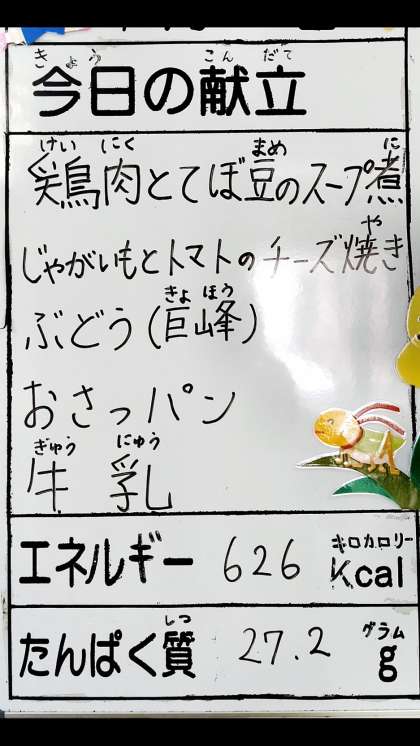 きょう こんだて
今日の献立
けい にく まめ に
鶏肉とてぼ豆のスープ煮
や
じゃがいもとトマトのチーズ焼き
きょ ほう
ぶどう(巨峰)
おさつパン
ぎゅう にゅう
牛乳
キロカロリー
エネルギー 626 Kcal
しつ グラム
たんぱく質 27.2 g